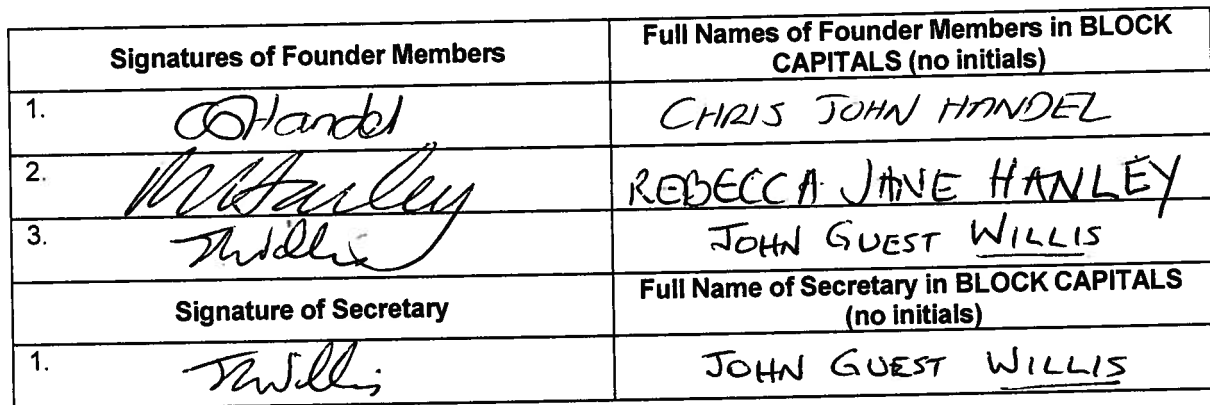 Signatures of Founder Members
Full Names of Founder Members in BLOCK
CAPITALS (no initials)
1. CJHandel CHRIS JOHN HANDEL
2. RJHanley REBECCA JANE HANLEY
3. JGWillis JOHN GUEST WILLIS
Signature of Secretary
Full Name of Secretary in BLOCK CAPITALS
(no initials)
1. JGWillis JOHN GUEST WILLIS